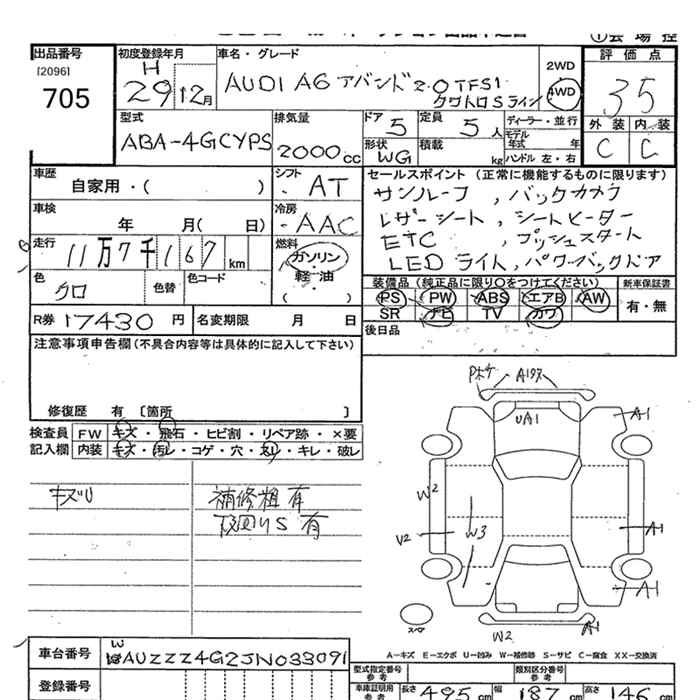 ①会場控
出品番号 初度登録年月 車名・グレード 評価点
[2096]
705
H 29 12月
AUDI A6 アバント 2.0 TFSI
クワトロ Sライン
2WD
4WD
3.5
型式 ABA-4GCYPS
排気量 2000cc
ドア 5 定員 5人
形状 WG 積載 kg
ディーラー・並行
モデル年式 年
ハンドル 左・右
外装 内装
C C
車歴 自家用・( )
シフト AT
車検 年 月( 日)
冷房 AAC
走行 11万7千167km
燃料 ガソリン・軽・油 ( )
色 クロ 色替 色コード
セールスポイント(正常に機能するものに限ります)
サンルーフ、バックカメラ
レザーシート、シートヒーター
ETC、プッシュスタート
LEDライト,パワーバックドア
装備品(純正品に限り○をつけてください) 新車保証書
PS PW ABS エアB AW 有・無
SR ナビ TV カワ
R券 17430円 名変期限 月 日
後日品
注意事項申告欄(不具合内容等は具体的に記入して下さい)
修復歴 有 [箇所 ]
検査員 FW キズ・飛石・ヒビ割・リペア跡・×要
記入欄 内装 キズ・汚レ・コゲ・穴・スリ・キレ・破レ
キズU 補修粗有
下回りS有
A1
UA1
A1
W2
V2 W3 A1
A1
スペア W2 A1
A-キズ E-エクボ U-凹み W-補修跡 S-サビ C-腐食 XX-交換済
車台番号 WAUZZZ4G2JN033091
登録番号
型式指定番号 参考 類別区分番号 参考
車庫証明用 参考 長さ 495cm 幅 187cm 高さ 146cm